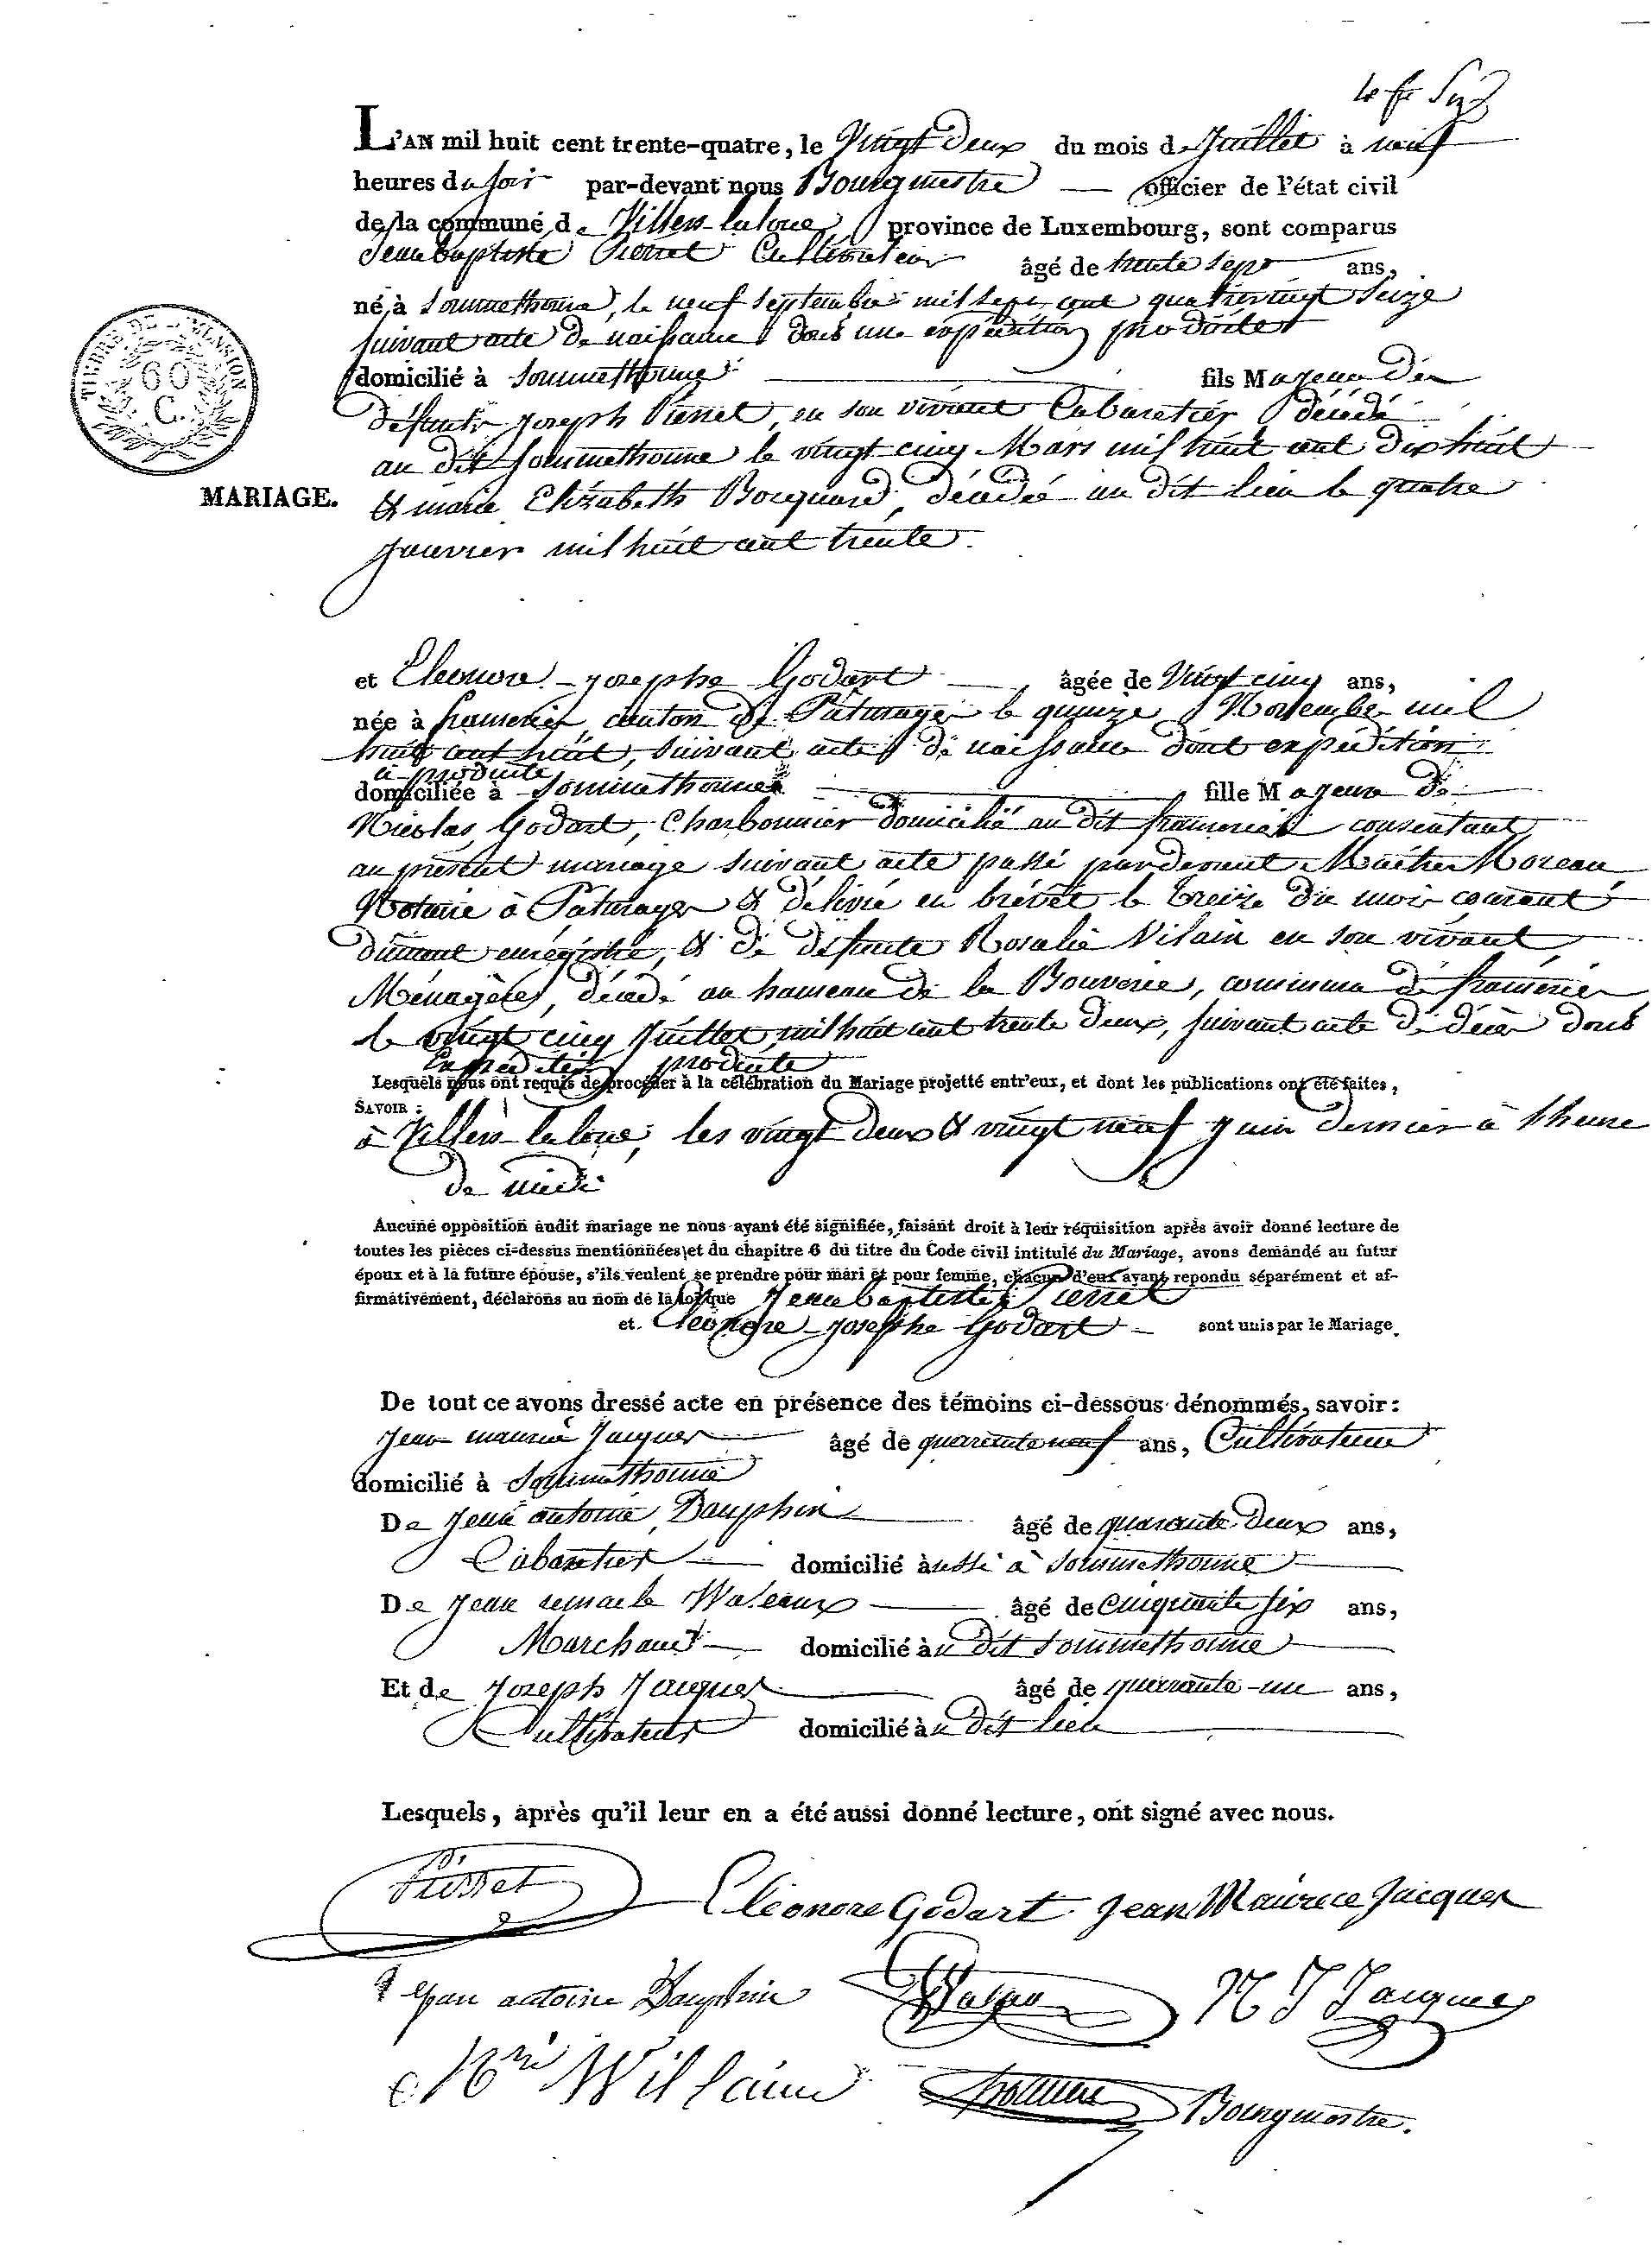 4e fr Six
L'AN mil huit cent trente-quatre, le Vingt Deux du mois de Juillet à neuf
heures du soir par-devant nous Bourgmestre officier de l'état civil
de la commune de Villers-laloue province de Luxembourg, sont comparus
Jean baptiste Pierret Cultivateur âgé de trente sept ans,
né à Sommethonne, le neuf Septembre mil sept cent quatrevingt Seize
suivant acte de naissance dont une expédition produite
domicilié à Sommethonne fils Majeur de
défunts joseph Pierret, en son vivant Cabaretier décédé
au dit Sommethonne le vingt cinq Mars mil huit cent dix huit
TIMBRE DE DIMENSION
60
C.
MARIAGE.
& marie Elizabeth Bocquard, décédée au dit lieu le quatre
janvier mil huit cent trente.
et Eleonore-josephe Godart âgée de Vingt cinq ans,
née à framerie, canton de Pâturages le quinze Novembre mil
huit cent huit, suivant acte de naissance dont expédition
ci-produite
domiciliée à Sommethonne fille Majeure de
Nicolas Godart, Charbonnier domicilié au dit frameries consentant
au présent mariage suivant acte passé pardevant Maitre Moreau
Notaire à Pâturages & délivré en brévet le treize du mois courant
dûment enregistré, & de defunte Rosalie Vilain en son vivant
Ménagère, décédé au hameau de la Bouverie, commune de framerie
le vingt cinq Juillet mil huit cent trente deux, suivant acte de décès dont
Expédition produite
Lesquels nous ont requis de procéder à la célébration du Mariage projetté entr'eux, et dont les publications ont été faites,
SAVOIR :
à Villers-laloue, les vingt deux & vingt neuf juin dernier à l'heure
de midi
Aucune opposition audit mariage ne nous ayant été signifiée, faisant droit à leur réquisition après avoir donné lecture de
toutes les pièces ci-dessus mentionnées et du chapitre 6 du titre du Code civil intitulé du Mariage, avons demandé au futur
époux et à la future épouse, s'ils veulent se prendre pour mari et pour femme, chacun d'eux ayant repondu séparément et af-
firmativement, déclarons au nom de la loi que Jean baptiste Pierret
et Eléonore-josephe Godart sont unis par le Mariage.
De tout ce avons dressé acte en présence des témoins ci-dessous dénommés, savoir :
jean maurice Jacques âgé de quarante neuf ans, Cultivateur
domicilié à Sommethonne
De jean antoine Dauphin âgé de quarante Deux ans,
Cabaretier domicilié aussi à Sommethonne
De jean remacle Waleaux âgé de Cinquante six ans,
Marchand domicilié àu dit Sommethonne
Et de joseph Jacques âgé de quarante-un ans,
Cultivateur domicilié àu dit lieu
Lesquels, après qu'il leur en a été aussi donné lecture, ont signé avec nous.
Pierret Eléonore Godart Jean Maurice Jacques
jean antoine Dauphin N J Jacques
Willaime Bourgmestre.